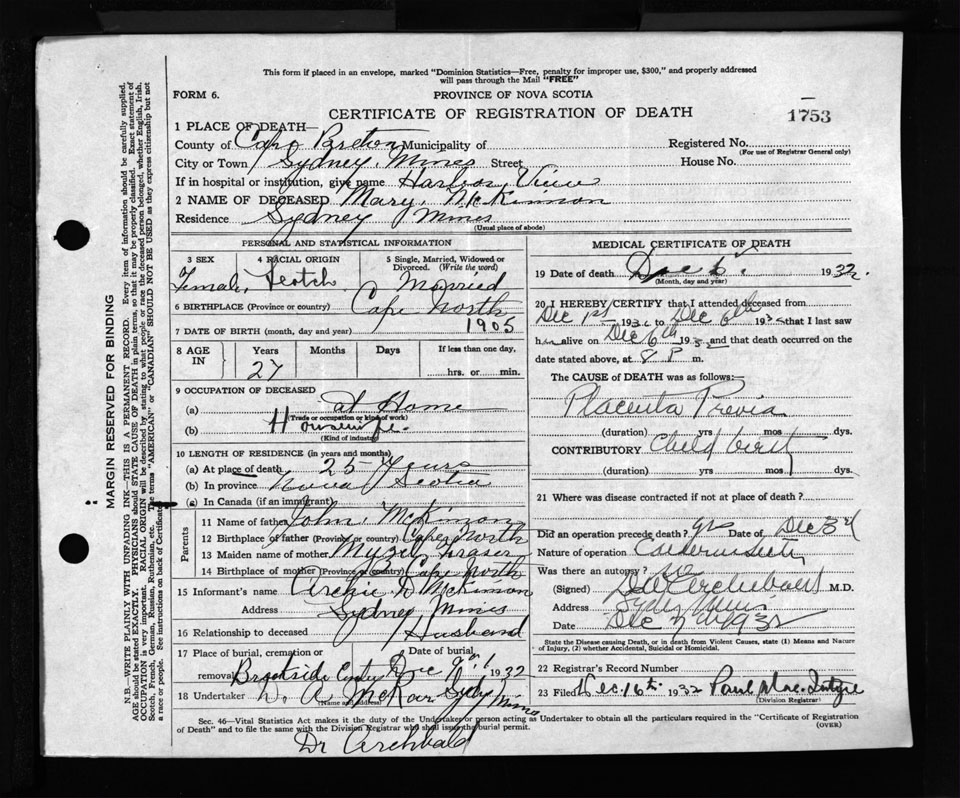 This form if placed in an envelope, marked "Dominion Statistics—Free, penalty for improper use, $300," and properly addressed
will pass through the Mail "FREE"
FORM 6.
PROVINCE OF NOVA SCOTIA
CERTIFICATE OF REGISTRATION OF DEATH
1753
1 PLACE OF DEATH—
County of Cape Breton Municipality of Registered No.
(For use of Registrar General only)
City or Town Sydney Mines Street House No.
If in hospital or institution, give name Harbor View
2 NAME OF DECEASED Mary McKinnon
Residence Sydney Mines
(Usual place of abode)
PERSONAL AND STATISTICAL INFORMATION
3 SEX 4 RACIAL ORIGIN 5 Single, Married, Widowed or Divorced. (Write the word)
Female Scotch Married
6 BIRTHPLACE (Province or country) Cape North
7 DATE OF BIRTH (month, day and year) 1905
8 AGE IN Years Months Days If less than one day,
27 hrs. or min.
9 OCCUPATION OF DECEASED
(a) at Home
(Trade or occupation or kind of work)
(b) Housewife
(Kind of industry)
10 LENGTH OF RESIDENCE (in years and months)
(a) At place of death 25 Years
(b) In province Nova Scotia
(c) In Canada (if an immigrant)
Parents
11 Name of father John McKinnon
12 Birthplace of father (Province or country) Cape North
13 Maiden name of mother Fraser
14 Birthplace of mother (Province or country) Cape North
15 Informant's name Archie D McKinnon
Address Sydney Mines
16 Relationship to deceased Husband
17 Place of burial, cremation or removal Date of burial
Brookside Dec 1932
18 Undertaker D. A. McRae Syd Mines
(Name and address)
MEDICAL CERTIFICATE OF DEATH
19 Date of death Dec 6 1932
(Month, day and year)
20 I HEREBY CERTIFY that I attended deceased from
Dec 1st 1932 to Dec 6th 1932 that I last saw
her alive on Dec 6th 1932 and that death occurred on the
date stated above, at 8 P m.
The CAUSE OF DEATH was as follows:
Placenta Previa
(duration) yrs mos dys.
CONTRIBUTORY Child birth
(duration) yrs mos dys.
21 Where was disease contracted if not at place of death?
Did an operation precede death? yes Date of Dec 3rd
Nature of operation
Was there an autopsy? no
(Signed) Archibald M.D.
Address Sydney Mines
Date Dec 7 1932
State the Disease causing Death, or in death from Violent Causes, state (1) Means and Nature
of Injury, (2) whether Accidental, Suicidal or Homicidal.
22 Registrar's Record Number
23 Filed Dec. 16th. 1932 Paul MacIntyre
(Division Registrar)
Sec. 46—Vital Statistics Act makes it the duty of the Undertaker or person acting as Undertaker to obtain all the particulars required in the "Certificate of Registration
of Death" and to file the same with the Division Registrar who shall issue the burial permit.
(OVER)
Dr Archbald
MARGIN RESERVED FOR BINDING
N.B.—WRITE PLAINLY WITH UNFADING INK—THIS IS A PERMANENT RECORD. Every item of information should be carefully supplied.
AGE should be stated EXACTLY. PHYSICIANS should STATE CAUSE OF DEATH in plain terms, so that it may be properly classified. Exact statement of
OCCUPATION is very important. RACIAL ORIGIN will be described by stating to what people or race the deceased person belonged, whether English, Irish,
Scotch, French, German, Russian, Ruthenian, etc. The terms "AMERICAN" or "CANADIAN" SHOULD NOT BE USED as they express citizenship but not
a race or people. See instructions on back of Certificate.